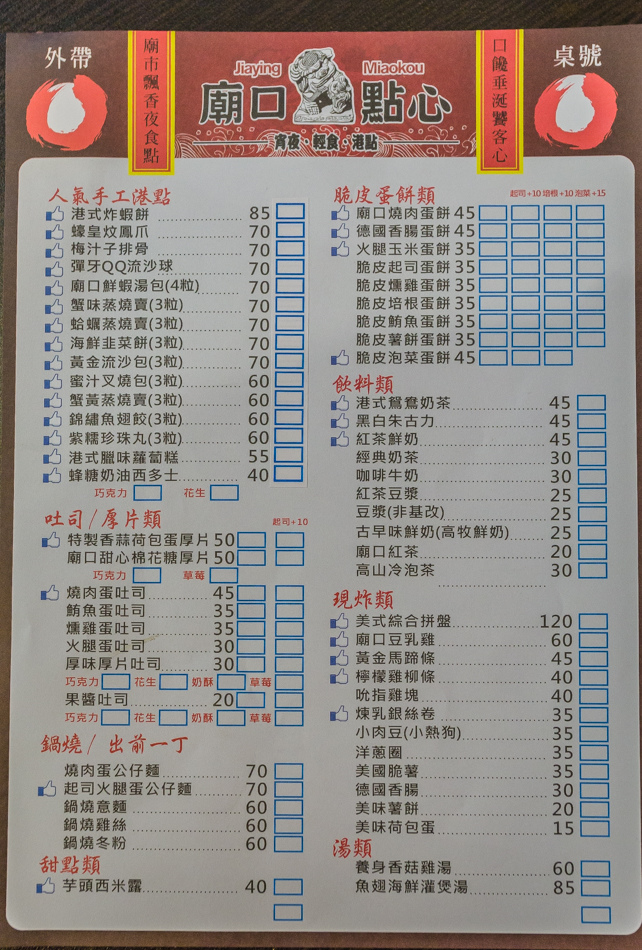 外帶
廟市飄香夜食點
Jiaying Miaokou
廟口點心
宵夜·輕食·港點
口饞垂涎饕客心
桌號
人氣手工港點
港式炸蝦餅 85
蠔皇炆鳳爪 70
梅汁子排骨 70
彈牙QQ流沙球 70
廟口鮮蝦湯包(4粒) 70
蟹味蒸燒賣(3粒) 70
蛤蠣蒸燒賣(3粒) 70
海鮮韭菜餅(3粒) 70
黃金流沙包(3粒) 70
蜜汁叉燒包(3粒) 60
蟹黃蒸燒賣(3粒) 60
錦繡魚翅餃(3粒) 60
紫糯珍珠丸(3粒) 60
港式臘味蘿蔔糕 55
蜂糖奶油西多士 40
巧克力 花生
吐司/厚片類 起司+10
特製香蒜荷包蛋厚片 50
廟口甜心棉花糖厚片 50
巧克力 草莓
燒肉蛋吐司 45
鮪魚蛋吐司 35
燻雞蛋吐司 35
火腿蛋吐司 30
厚味厚片吐司 30
巧克力 花生 奶酥 草莓
果醬吐司 20
巧克力 花生 奶酥 草莓
鍋燒/ 出前一丁
燒肉蛋公仔麵 70
起司火腿蛋公仔麵 70
鍋燒意麵 60
鍋燒雞絲 60
鍋燒冬粉 60
甜點類
芋頭西米露 40
脆皮蛋餅類 起司+10 培根+10 泡菜+15
廟口燒肉蛋餅 45
德國香腸蛋餅 45
火腿玉米蛋餅 35
脆皮起司蛋餅 35
脆皮燻雞蛋餅 35
脆皮培根蛋餅 35
脆皮鮪魚蛋餅 35
脆皮薯餅蛋餅 35
脆皮泡菜蛋餅 45
飲料類
港式鴛鴦奶茶 45
黑白朱古力 45
紅茶鮮奶 45
經典奶茶 30
咖啡牛奶 30
紅茶豆漿 25
豆漿(非基改) 25
古早味鮮奶(高牧鮮奶) 25
廟口紅茶 20
高山冷泡茶 30
現炸類
美式綜合拼盤 120
廟口豆乳雞 60
黃金馬蹄條 45
檸檬雞柳條 40
吮指雞塊 40
煉乳銀絲卷 35
小肉豆(小熱狗) 35
洋蔥圈 35
美國脆薯 35
德國香腸 30
美味薯餅 20
美味荷包蛋 15
湯類
養身香菇雞湯 60
魚翅海鮮灌煲湯 85